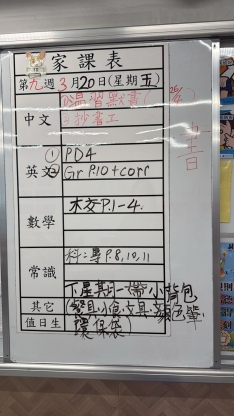 家課表
第九週3月20日(星期五)
中文
①溫習默書(26/3)
②抄書工
英文
① PD4
② Gr P.10+corr
數學
木交P.1-4.
常識
科:專P.8,10,11
下星期一帶小背包
其它
(餐具,水,食,文具,顏色筆
值日生
環保袋)